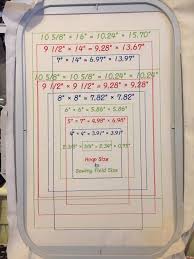 10 5/8" × 16" = 10.24" × 15.70"
9 1/2" × 14" = 9.28" × 13.67"
7" × 14" = 6.97" × 13.97"
10 5/8" × 10 5/8" = 10.24" × 10.24"
9 1/2" × 9 1/2" = 9.28" × 9.28"
8" × 8" = 7.82" × 7.82"
6" × 6" = 5.86" × 5.86"
5" × 7" = 4.98" × 6.98"
4" × 4" = 3.91" × 3.91"
Hoop Size
to
Sewing Field Size